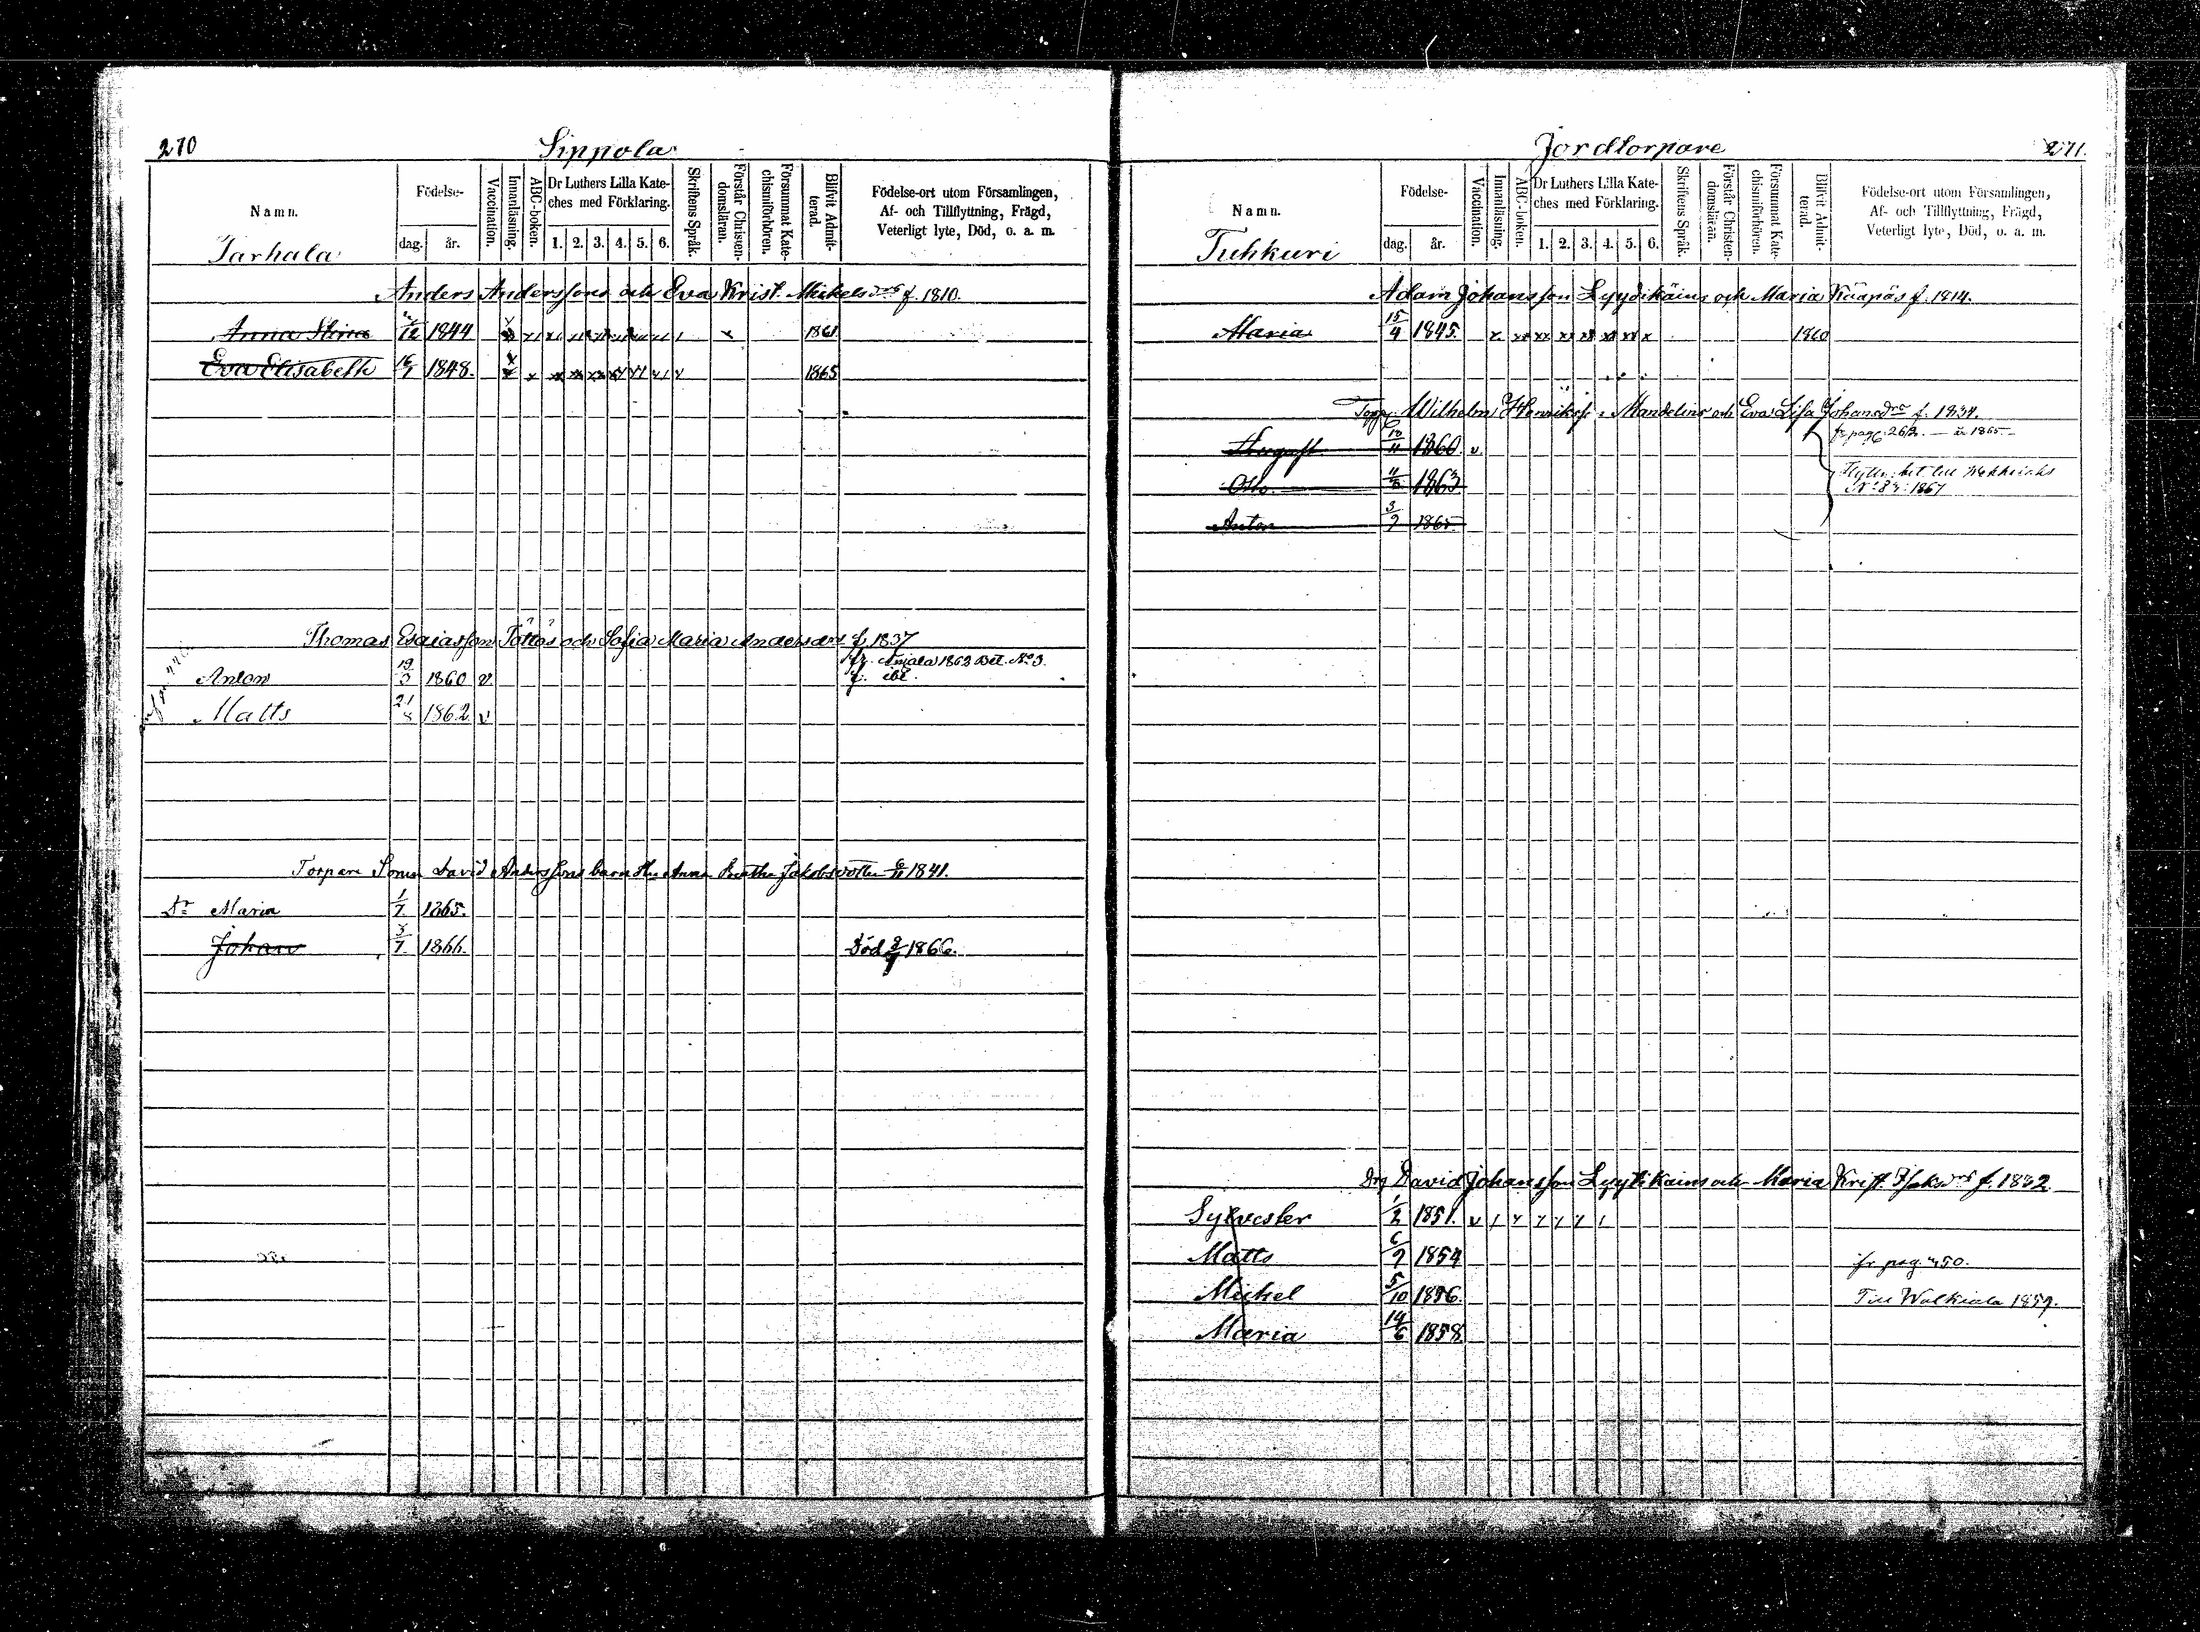 270
Sippola
Namn.
Födelse-
dag.
år.
Vaccination.
Innanläsning.
ABC-boken.
Dr Luthers Lilla Kate-
ches med Förklaring.
1. 2. 3. 4. 5. 6.
Skriftens Språk.
Förstår Christen-
domsläran.
Försummat Kate-
chismiförhören.
Blifvit Admit-
terad.
Födelse-ort utom Församlingen,
Af- och Tillflyttning, Frägd,
Veterligt lyte, Död, o. a. m.
Tarhala
Anders Andersson och Eva Krist. Mickelsdr f. 1810.
Anna Stina 12 1844 1861
Eva Elisabeth 16/7 1848. 1865
Thomas Esaiasson Töttös och Sofia Maria Andersdr f. 1837
fr. Anjala 1862 Bet. No 3.
Anton 19/3 1860 v. f. ibl.
Matts 21 1862 v
Torpare Sonen David Anderssons barn Hu Anna Beatha Jakobsdotter 6/11 1841.
Dr Maria 1/7 1865.
Johan 3/7 1866. Död 1866.
Jordtorpare
271.
Namn.
Födelse-
dag.
år.
Vaccination.
Innanläsning.
ABC-boken.
Dr Luthers Lilla Kate-
ches med Förklaring.
1. 2. 3. 4. 5. 6.
Skriftens Språk.
Förstår Christen-
domsläran.
Försummat Kate-
chismiförhören.
Blifvit Admit-
terad.
Födelse-ort utom Församlingen,
Af- och Tillflyttning, Frägd,
Veterligt lyte, Död, o. a. m.
Tuhkuri
Adam Johansson Lyydikäin och Maria f. 1814.
Maria 15/4 1845. 1860
Wilhelm Henrikss. Mandelin och Eva Lisa Johansdr f. 1834.
fr pag. 262. — år 1865 —
1860 v
Otto 1863
No 84. 1867
Anton 3/9 1865
Drg David Johansson Lyytikäin och Maria Krist. f. 1832
Sylvester 1/2 1851. v
Matts 6/9 1854 fr pag. 450.
Mickel 5/10 1856. Till Walkiala 1859.
Maria 14/6 1858